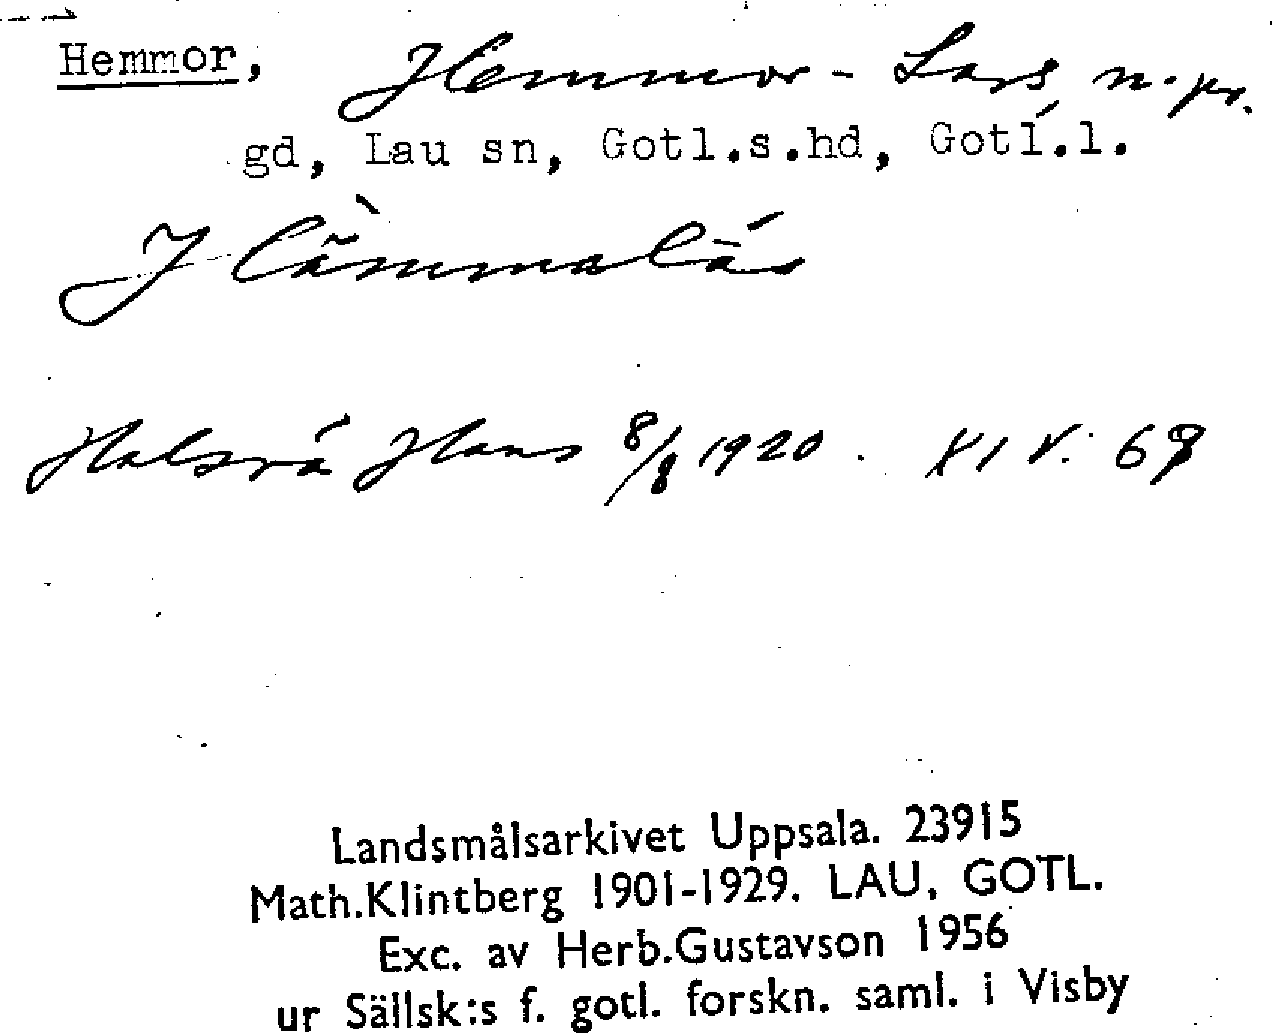 Hemmor, Hemmor - Lars, n. pr.
gd, Lau sn, Gotl.s.hd, Gotl.l.
Halsrå Hans 8/8 1920. XIV: 69
Landsmålsarkivet Uppsala. 23915
Math.Klintberg 1901-1929. LAU, GOTL.
Exc. av Herb.Gustavson 1956
ur Sällsk:s f. gotl. forskn. saml. i Visby